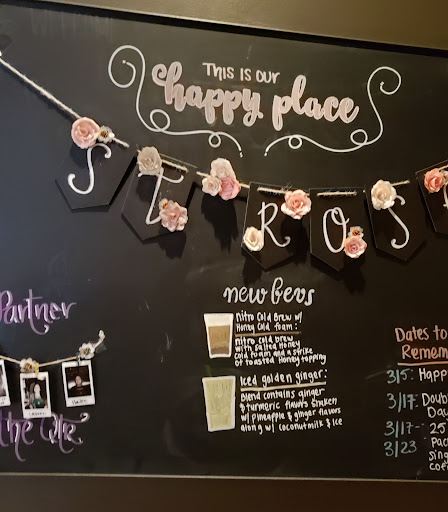 This is our
happy place
S T R O S
new bevs
Nitro Cold Brew w/
Honey Cold foam:
nitro cold brew
with salted honey
cold foam and a strike
of toasted honey topping
Iced golden ginger:
Blend contains ginger
& turmeric flavors shaken
w/ pineapple & ginger flavors
along w/ coconutmilk & ice
Partner
the
Dates to
Remem
3/5: Happ
3/17: Doub
Da
3/17- 25
3/23 Pac
sing